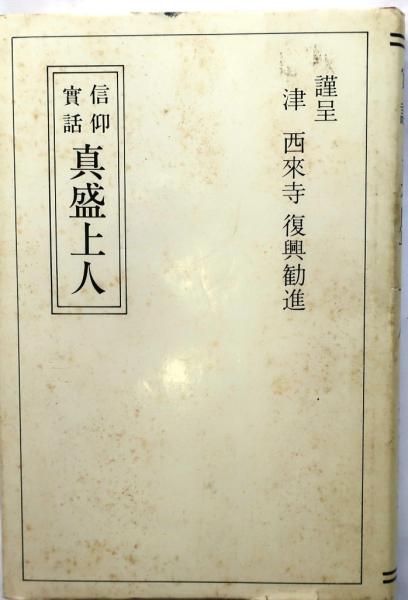 謹呈
津 西來寺 復興勧進
信仰
實話
真盛上人